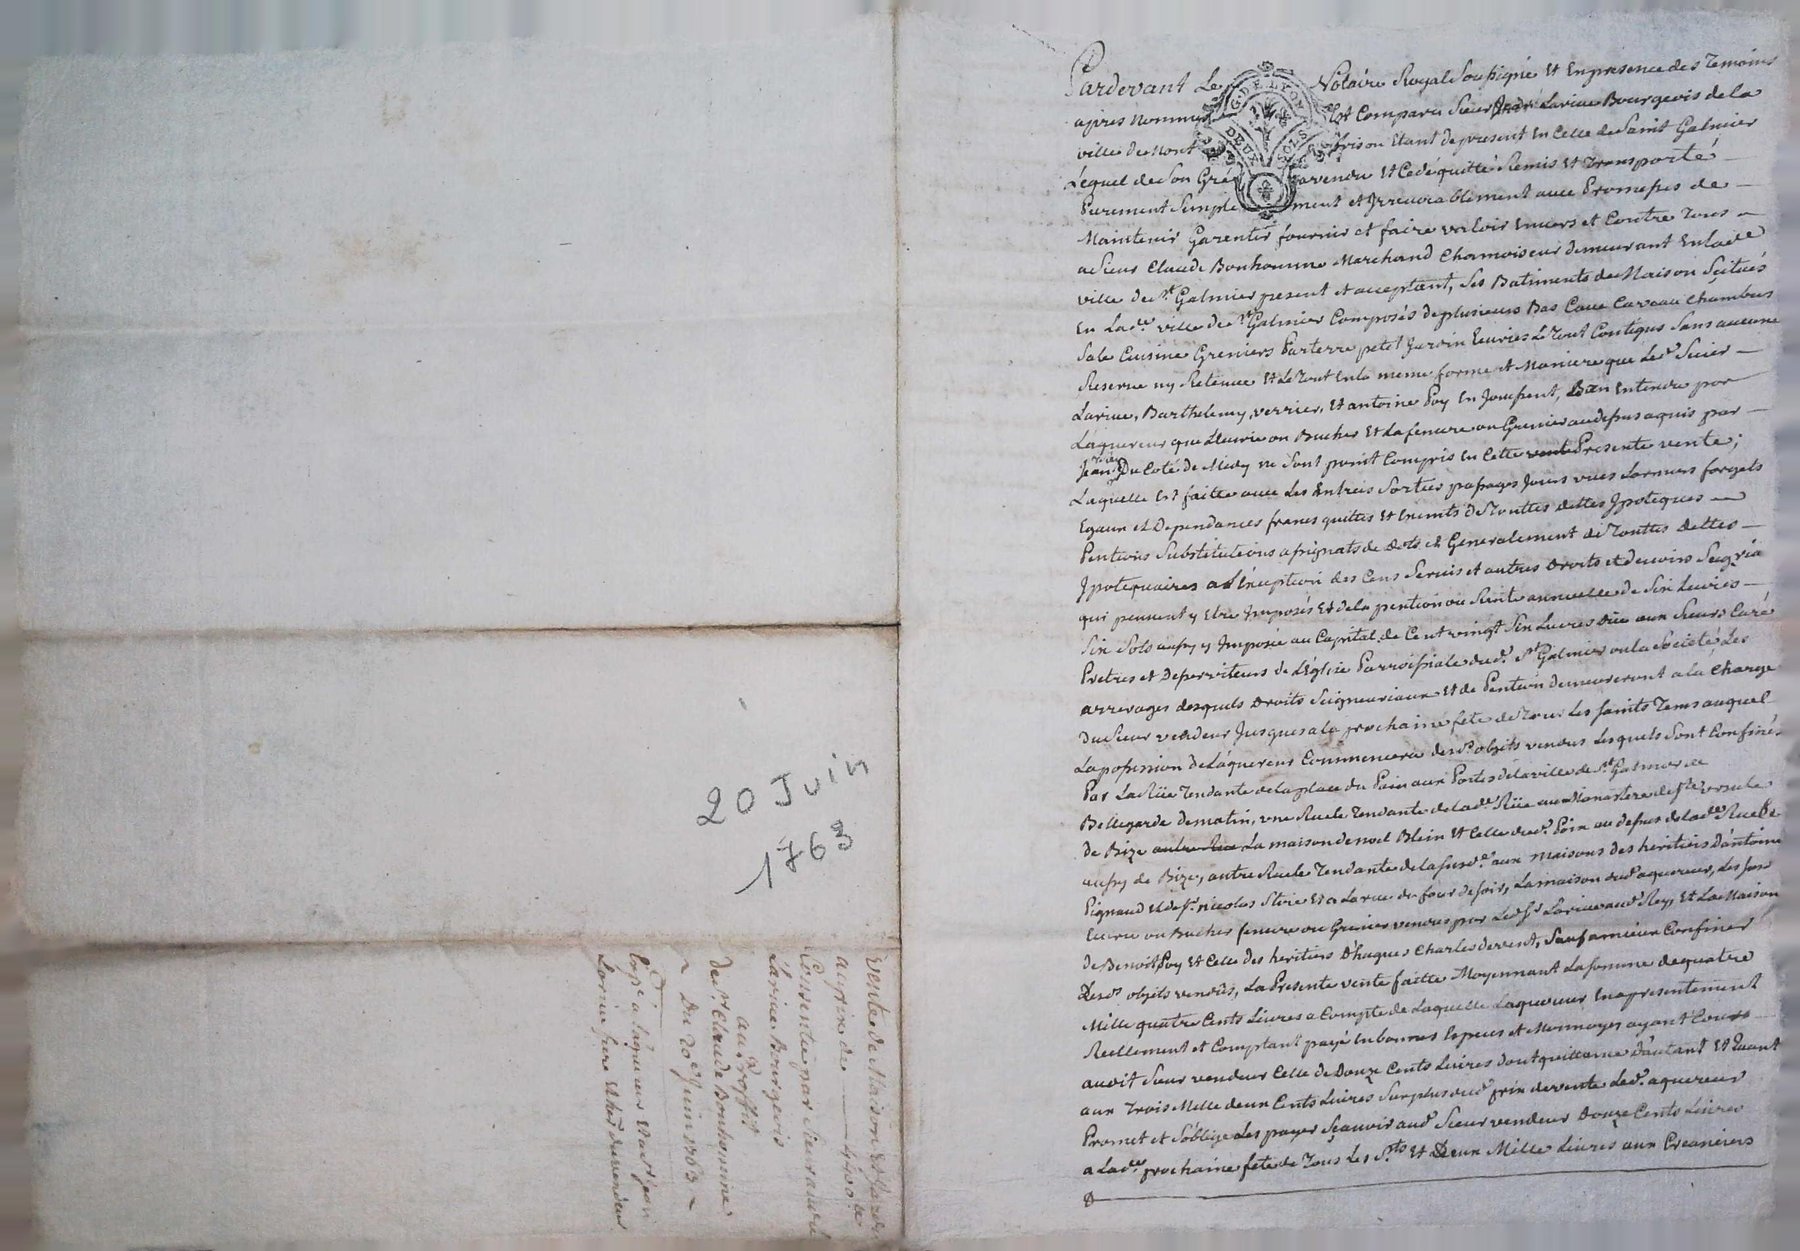 20 Juin
1763
Vente de Maison et Jardin
au prix de 4400 lt
Consentie par Sieur andré
Lariue Bourgeois
au Proffit
de sr Claude Bonhomme
Du 20e Juin 1763
Expe a laquereur et au sr jean
Lariue frere et her du vendeur
G. DE LYON
DEUX SOLS
Pardevant Le Notaire Royal Soussigné Et En presence des Temoins
apres nommés Est Comparu Sieur André Lariue Bourgeois de la
ville de Montbrison Etant de present En Celle de Saint Galmier
Lequel de Son Gré a vendu Et Cedé quitté Remis Et Transporté
Purement Simplement et Irreuocablement auec Promesses de
Maintenir Garentir fournir et faire valoir Enuers et Contre Tous
a Sieur Claude Bonhomme Marchand Chamoiseur demeurant En lade
ville de st Galmier present et acceptant, Ses Batiments de Maison Scitués
En Lade ville de st Galmier Composés de plusieurs Bas Caue Caveau Chambres
Sale Cuisine Greniers Parterre petit Jardin Ecuries Le Tout Contigus Sans aucune
Reserue ny Retenue Et Le Tout En la meme forme et Maniere que Led Sieur
Lariue, Barthelemy verrier, Et antoine Poy En Jouissent, Bien Entendu par
Laquereur que LEcurie ou Bucher Et La feniere ou Grenier au dessus aquis par
Jean Rey Du Coté de Midy ne Sont point Compris En Cette vente Presente vente;
Laquelle Est faitte auec Les Entrées Sorties passages Jours vües Larmiers forgets
Egaux et Dependances francs quittes Et Exempts de Touttes dettes Ypoteques
Pentions Substitutions assignats de dots et Generalement de Touttes dettes
Ypotequaires a l'Exeption des Cens Servis et autres Droits et deuoirs Seigrix
qui peuuent y Etre Imposés Et de la pention ou Rente annuelle de Six Liures
Six Sols aussy y Imposée au Capital de Cent vingt Six Liures düe aux Sieurs Curé
Pretres et Desserviteurs de L'Eglise Parroissiale dud. st Galmier ou la Societé Les
arrerages desquels Droits Seigneuriaux Et de Pention demeureront a la Charge
du Sieur vendeur Jusques a la prochaine fete de Tous Les Saints Tems auquel
La possession de Laquereur Commencera desd objets vendus Lesquels Sont Confinés
Par La Rüe Tendante de la place du Pain aux Portes de la ville de st Galmier de
Bellegarde de matin, vne Ruele Tendante de lade Rüe au Monastere de ste vrsule
de Bize autre Rue La maison de noel Blein Et Celle dud. Poix au dessus de lade Ruele
aussy de Bize, autre Ruele Tendante de la susde aux maisons des heritiers d'antoine
Pignaud et de sr nicolas Et a La rue du four de soir, La maison dud aquereur, Les
Ecurie ou Bucher feniere ou Grenier vendus par Led sr Lariue aud Rey, Et La Maison
de Benoit Poy Et Celle des heritiers Charles de vent, Sauf a mieux Confiner
Lesd objets vendûs, La Presente vente faitte Moyennant La Somme de quatre
Mille quatre Cents Liures a Compte de Laquelle Laquereur En a presentement
Reellement et Comptant payé En bonnes Especes et Monnoyes ayant Cours
audit Sieur vendeur Celle de Douze Cents Liures dont quittance d'autant Et Quant
aux Trois Mille deux Cents Liures Surplus dud prix de vente Led. aquereur
Promet et S'oblige Les payer Sçauoir aud. Sieur vendeur Douze Cents Liures
a Lade prochaine fete de Tous Les Sts Et Deux Mille Liures aux Creanciers